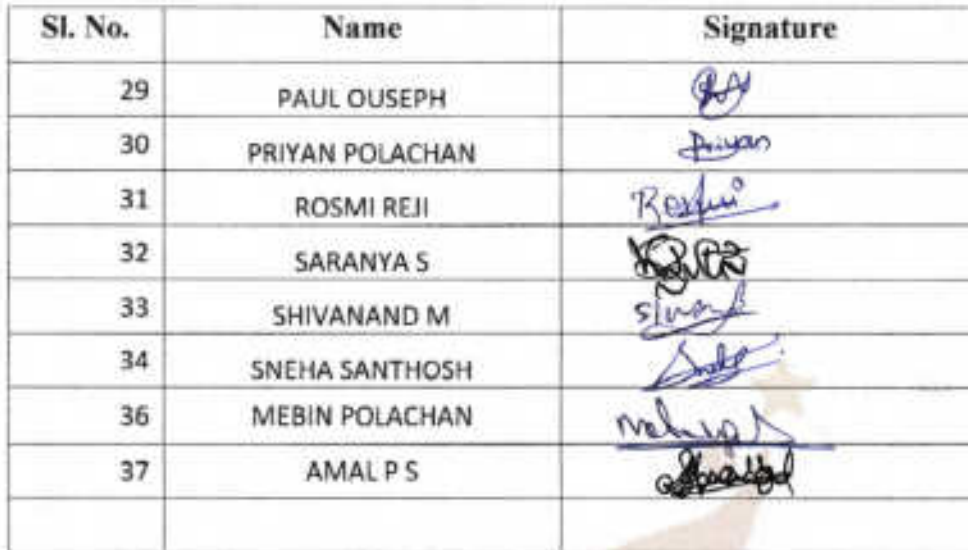 Sl. No. Name Signature
29 PAUL OUSEPH
30 PRIYAN POLACHAN Priyan
31 ROSMI REJI Rosmi
32 SARANYA S
33 SHIVANAND M
34 SNEHA SANTHOSH
36 MEBIN POLACHAN
37 AMAL P S